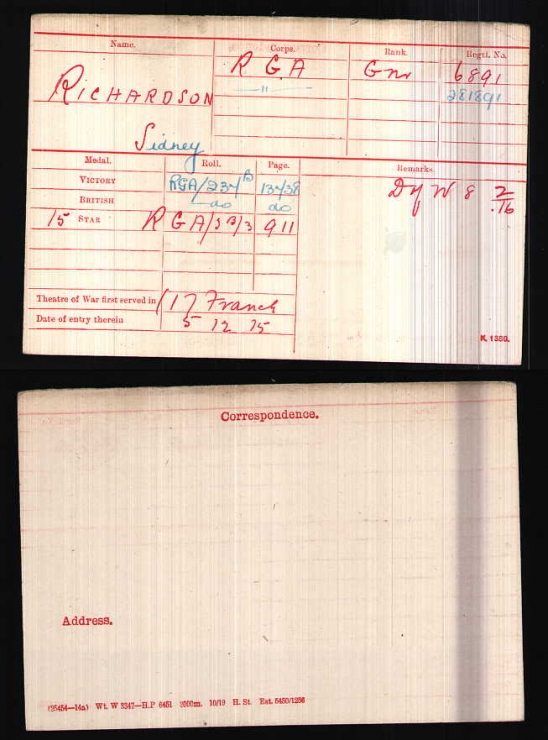 Name. Corps. Rank. Regtl. No.
RICHARDSON R G A Gnr 6891
" 281891
Sidney
Medal. Roll. Page. Remarks.
VICTORY RGA/234B
BRITISH do do
15 STAR R G A/ 911
Theatre of War first served in (1) France
Date of entry therein 5 12 15
K. 1380.
Correspondence.
Address.
(25454—14a) Wt. W 3347—H.P 6451 2000m. 10/19 H. St. Est. 5450/1256